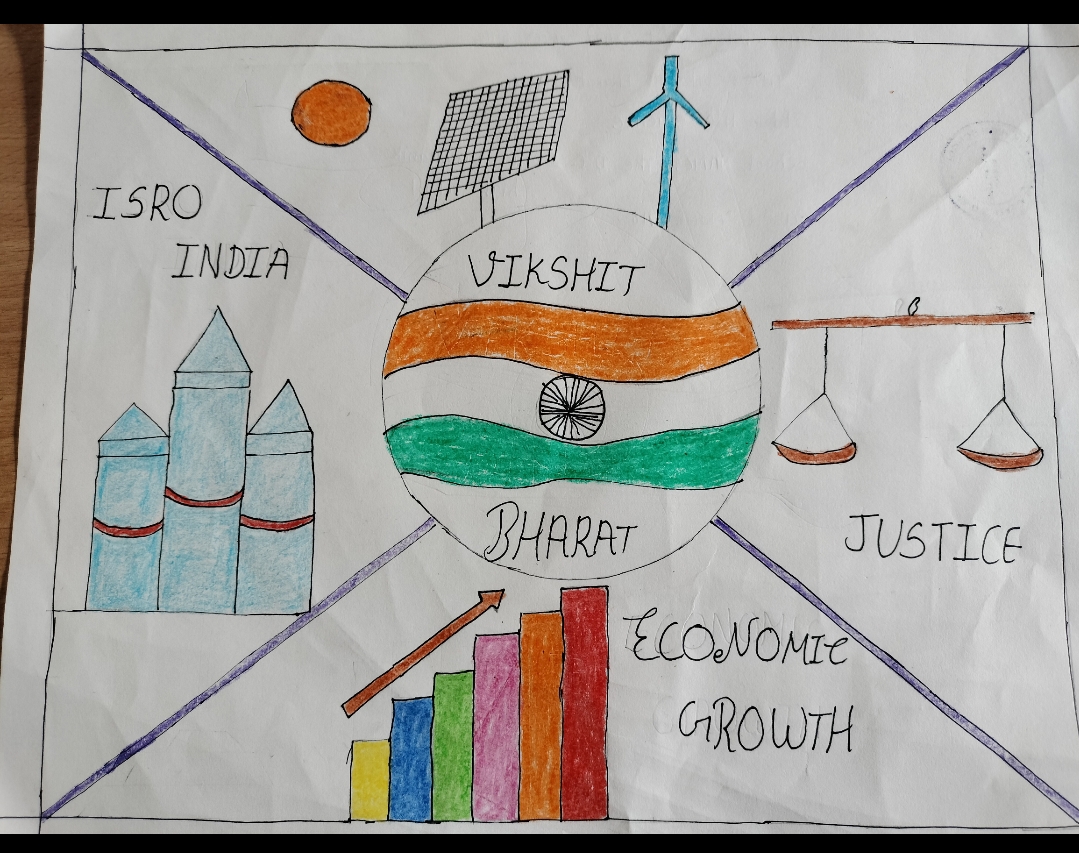 ISRO
INDIA
VIKSHIT
BHARAT
JUSTICE
ECONOMIC
GROWTH